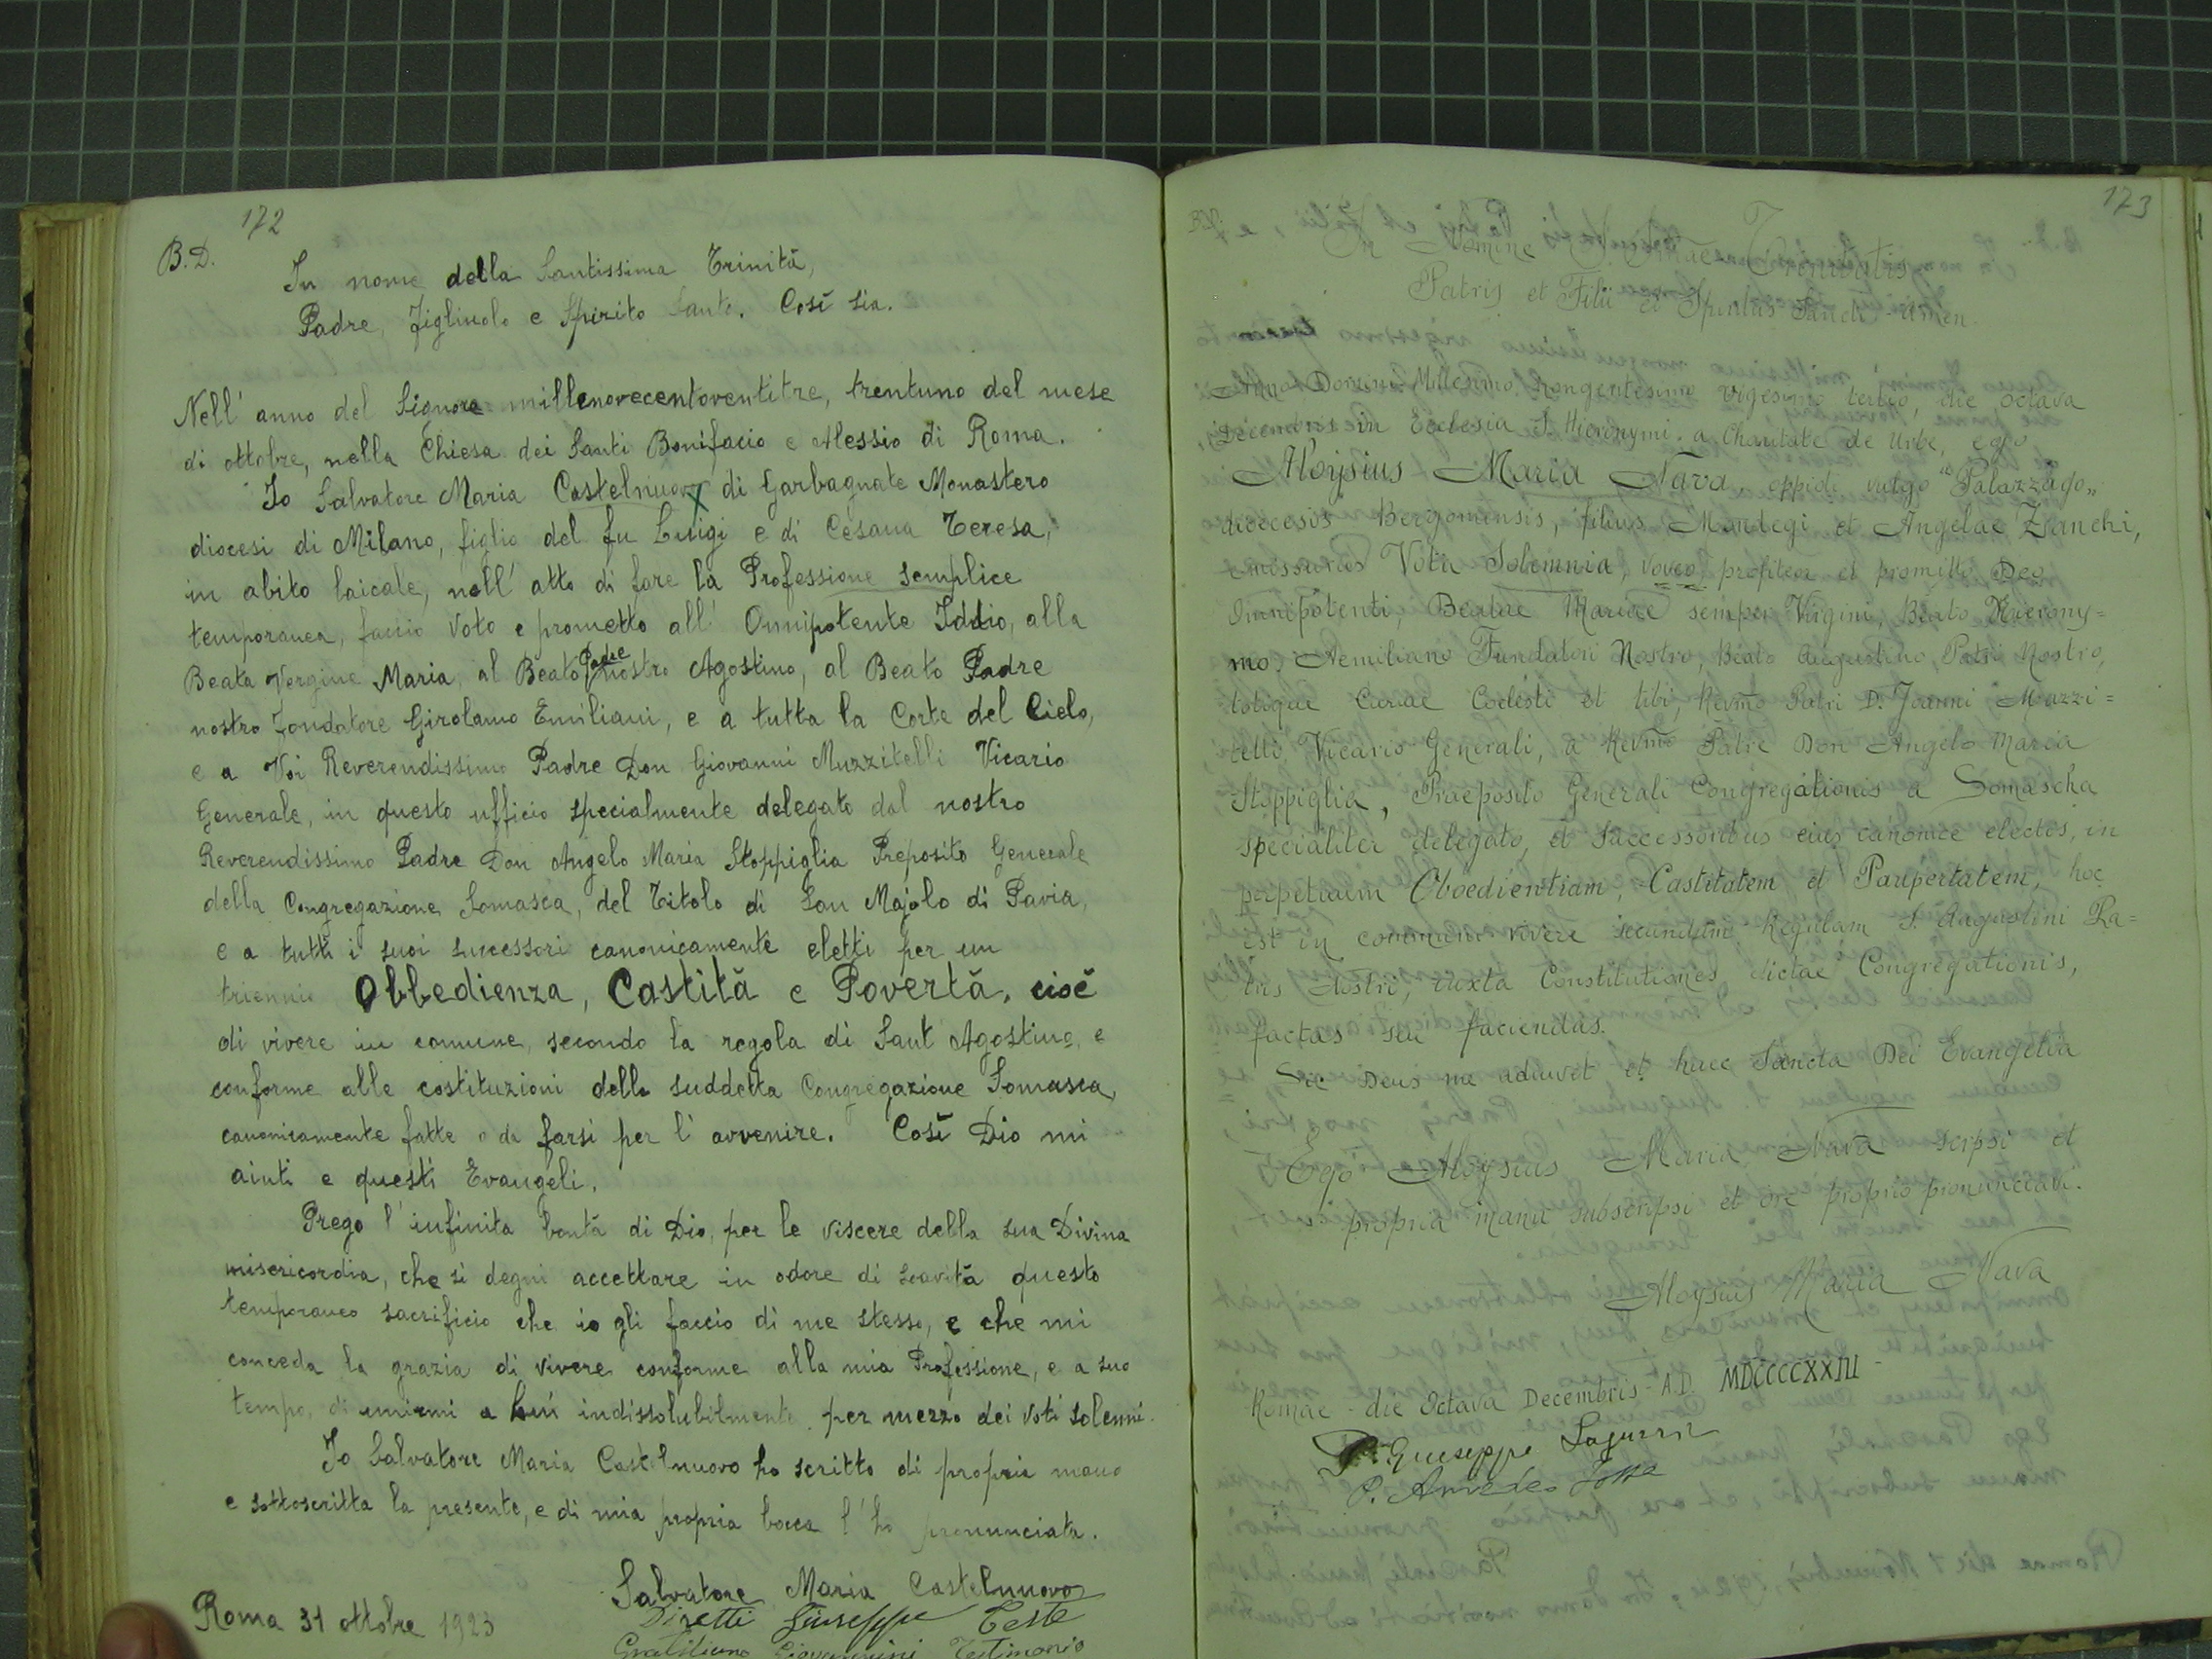 172
B.D.
In nome della Santissima Trinità,
Padre, Figliuolo e Spirito Santo. Così sia.
Nell' anno del Signore millenovecentoventitre, trentuno del mese
di ottobre, nella Chiesa dei Santi Bonifacio e Alessio di Roma.
Io Salvatore Maria Castelnuovo di Garbagnate Monastero
diocesi di Milano, figlio del fu Luigi e di Cesana Teresa,
in abito laicale, nell' atto di fare la Professione semplice
temporanea, faccio Voto e prometto all' Onnipotente Iddio, alla
Beata Vergine Maria, al Beato Padre nostro Agostino, al Beato Padre
nostro Fondatore Girolamo Emiliani, e a tutta la Corte del Cielo,
e a Voi Reverendissimo Padre Don Giovanni Muzzitelli Vicario
Generale, in questo ufficio specialmente delegato dal nostro
Reverendissimo Padre Don Angelo Maria Stoppiglia Preposito Generale
della Congregazione Somasca, del Titolo di San Majolo di Pavia,
e a tutti i suoi successori canonicamente eletti per un
triennio Obbedienza, Castità e Povertà, cioè
di vivere in comune, secondo la regola di Sant' Agostino, e
conforme alle costituzioni della suddetta Congregazione Somasca,
canonicamente fatte o da farsi per l' avvenire. Così Dio mi
aiuti e questi Evangeli.
Prego l' infinita bontà di Dio, per le viscere della sua Divina
misericordia, che si degni accettare in odore di soavità questo
temporaneo sacrificio che io gli faccio di me stesso, e che mi
conceda la grazia di vivere conforme alla mia Professione, e a suo
tempo, di unirmi a Lui indissolubilmente per mezzo dei voti solenni.
Io Salvatore Maria Castelnuovo ho scritto di propria mano
e sottoscritta la presente, e di mia propria bocca l' ho pronunciata.
Salvatore Maria Castelnuovo
Roma 31 ottobre 1923
Giuseppe Teste
Giovannini Testimonio
173
In Nomine Trinitatis
Patris et Filii et Spiritus Sancti - Amen
Anno Domini Millesimo Nongentesimo Vigesimo tertio, die octava
Decembris in Ecclesia S. Hieronymi a Charitate de Urbe, ego
Aloysius Maria Nava, oppidi vulgo "Palazzago„
dioecesis Bergomensis, filius Mandegi et Angelae Zanchi,
emissurus Vota Solemnia, voveo, profiteor et promitto Deo
Omnipotenti, Beatae Mariae semper Virgini, Beato Hierony=
mo, Aemiliano Fundatori Nostro, Beato Augustino Patri Nostro,
totique Curiae Coelesti et tibi, Revmo Patri D. Joanni Muzzi=
telli, Vicario Generali, a Revmo Patre Don Angelo Maria
Stoppiglia, Praeposito Generali Congregationis a Somascha
specialiter delegato, et Successoribus eius canonice electis, in
perpetuum Oboedientiam, Castitatem et Paupertatem, hoc
est in communi vivere secundum Regulam S. Augustini Pa=
tris Nostri, iuxta Constitutiones dictae Congregationis,
factas seu faciendas.
Sic Deus me adiuvet et haec Sancta Dei Evangelia
Ego Aloysius Maria Nava scripsi et
propria manu subscripsi et ore proprio pronunciavi.
Aloysius Maria Nava
Romae - die Octava Decembris - A.D. MDCCCCXXIII -
P. Giuseppe
P. Amedeo